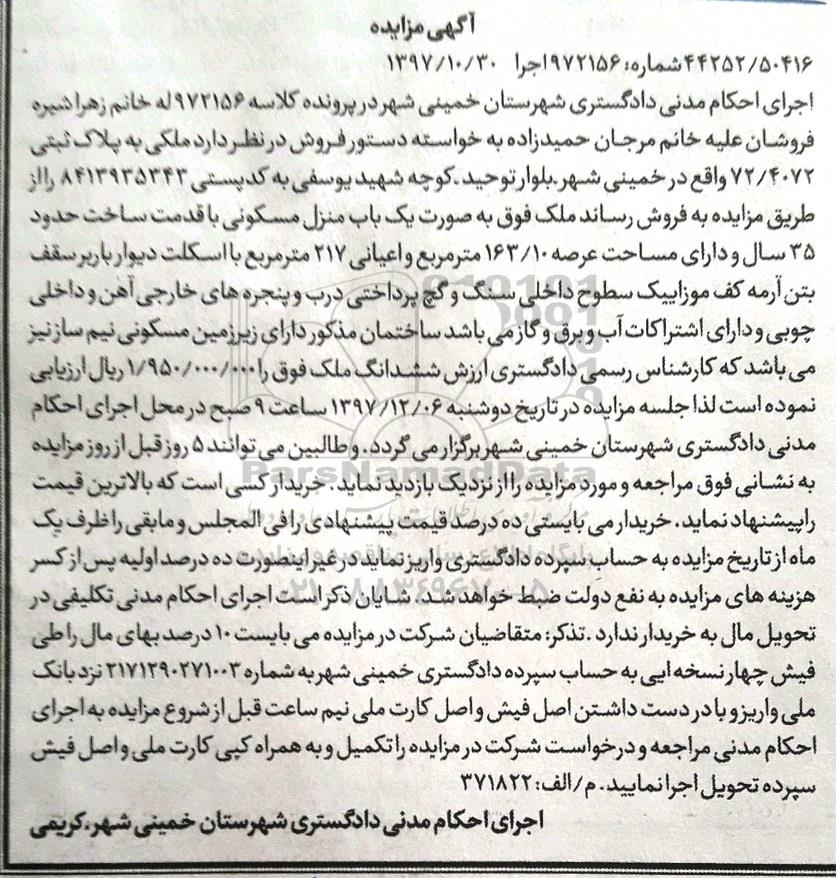 آگهی مزایده
۴۴۲۵۲/۵۰۴۱۶ شماره: ۹۷۲۱۵۶ اجرا ۱۳۹۷/۱۰/۳۰
اجرای احکام مدنی دادگستری شهرستان خمینی شهر در پرونده کلاسه ۹۷۲۱۵۶ له خانم زهرا شیره
فروشان علیه خانم مرجان حمیدزاده به خواسته دستور فروش در نظر دارد ملکی به پلاک ثبتی
۷۲/۴۰۷۲ واقع در خمینی شهر.بلوار توحید.کوچه شهید یوسفی به کدپستی ۸۴۱۳۹۳۵۳۴۳ را از
طریق مزایده به فروش رساند ملک فوق به صورت یک باب منزل مسکونی با قدمت ساخت حدود
۳۵ سال و دارای مساحت عرصه ۱۶۳/۱۰ مترمربع و اعیانی ۲۱۷ مترمربع با اسکلت دیوار باربر سقف
بتن آرمه کف موزاییک سطوح داخلی سنگ و گچ پرداختی درب و پنجره های خارجی آهن و داخلی
چوبی و دارای اشتراکات آب و برق و گاز می باشد ساختمان مذکور دارای زیرزمین مسکونی نیم ساز نیز
می باشد که کارشناس رسمی دادگستری ارزش ششدانگ ملک فوق را ۱/۹۵۰/۰۰۰/۰۰۰ ریال ارزیابی
نموده است لذا جلسه مزایده در تاریخ دوشنبه ۱۳۹۷/۱۲/۰۶ ساعت ۹ صبح در محل اجرای احکام
مدنی دادگستری شهرستان خمینی شهر برگزار می گردد. و طالبین می توانند ۵ روز قبل از روز مزایده
به نشانی فوق مراجعه و مورد مزایده را از نزدیک بازدید نماید. خریدار کسی است که بالاترین قیمت
را پیشنهاد نماید. خریدار می بایستی ده درصد قیمت پیشنهادی را فی المجلس و مابقی را ظرف یک
ماه از تاریخ مزایده به حساب سپرده دادگستری واریز نماید در غیر اینصورت ده درصد اولیه پس از کسر
هزینه های مزایده به نفع دولت ضبط خواهد شد. شایان ذکر است اجرای احکام مدنی تکلیفی در
تحویل مال به خریدار ندارد .تذکر: متقاضیان شرکت در مزایده می بایست ۱۰ درصد بهای مال را طی
فیش چهار نسخه ایی به حساب سپرده دادگستری خمینی شهر به شماره ۲۱۷۱۲۹۰۲۷۱۰۰۳ نزد بانک
ملی واریز و با در دست داشتن اصل فیش و اصل کارت ملی نیم ساعت قبل از شروع مزایده به اجرای
احکام مدنی مراجعه و درخواست شرکت در مزایده را تکمیل و به همراه کپی کارت ملی و اصل فیش
سپرده تحویل اجرا نمایید. م/الف: ۳۷۱۸۲۲
اجرای احکام مدنی دادگستری شهرستان خمینی شهر.کریمی
ParsNamadData